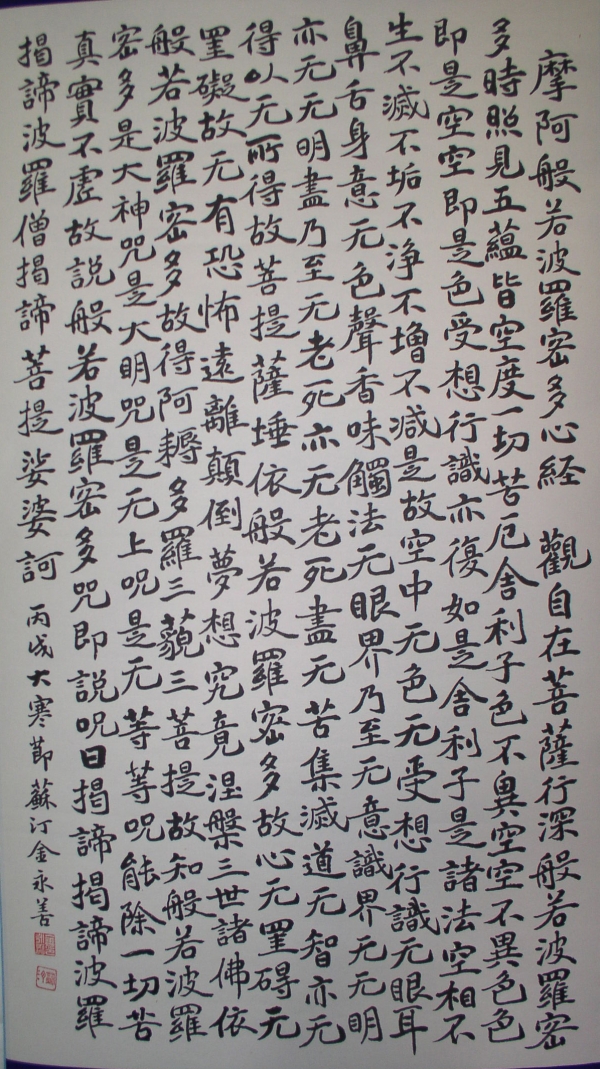 摩阿般若波羅密多心経 觀自在菩薩行深般若波羅密
多時照見五蘊皆空度一切苦厄舍利子色不異空空不異色色
即是空空即是色受想行識亦復如是舍利子是諸法空相不
生不滅不垢不淨不增不減是故空中无色无受想行識无眼耳
鼻舌身意无色聲香味觸法无眼界乃至无意識界无无明
亦无无明盡乃至无老死亦无老死盡无苦集滅道无智亦无
得以无所得故菩提薩埵依般若波羅密多故心无罣碍无
罣礙故无有恐怖遠離顛倒夢想究竟涅槃三世諸佛依
般若波羅密多故得阿耨多羅三藐三菩提故知般若波羅
密多是大神咒是大明咒是无上呪是无等等呪能除一切苦
真實不虛故說般若波羅密多咒即說呪曰揭諦揭諦波羅
揭諦波羅僧揭諦菩提娑婆訶 丙戌大寒節蘇汀金永善